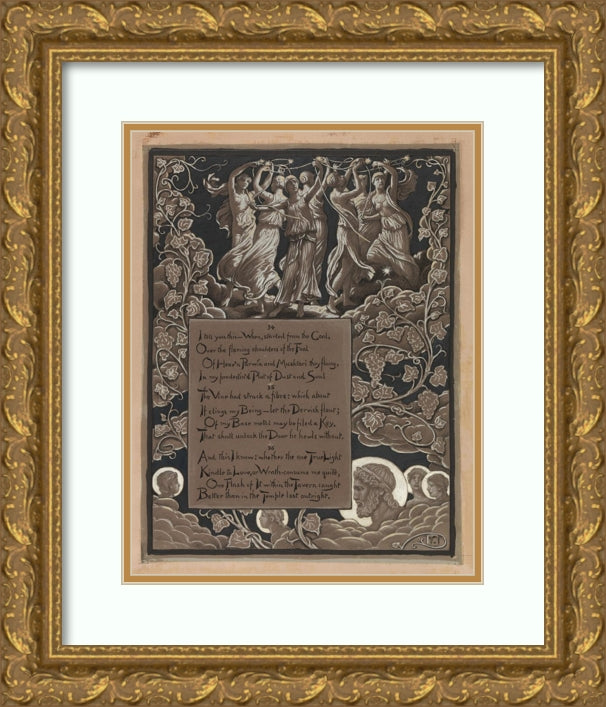 34
I tell you this—When, started from the Goal,
Over the flaming shoulders of the Foal
Of Heav'n Parwin and Mushtari they flung,
In my predestin'd Plot of Dust and Soul
35
The Vine had struck a fibre; which about
If clings my Being—let the Dervish flout;
Of my Base metal may be filed a Key,
That shall unlock the Door he howls without.
36
And, this I know: whether the one True Light
Kindle to Love, or Wrath-consume me quite,
One Flash of It within the Tavern caught
Better than in the Temple lost outright.
V